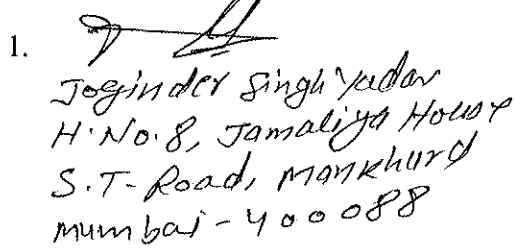 1.
Joginder Singh Yadav
H.No.8, Jamaliya House
S.T-Road, Mankhurd
Mumbai-400088